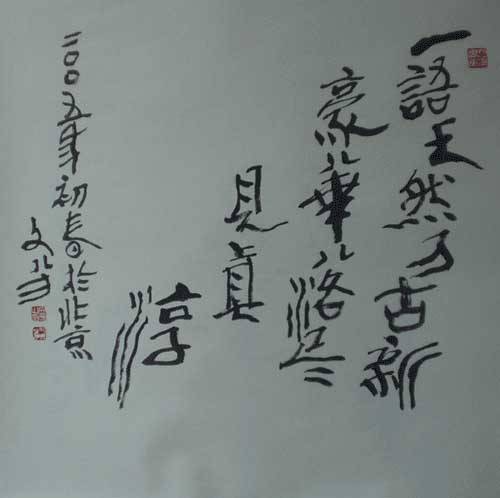 一語天然万古新
豪華落尽
見真
淳
二〇〇五年初春於北京
文芳